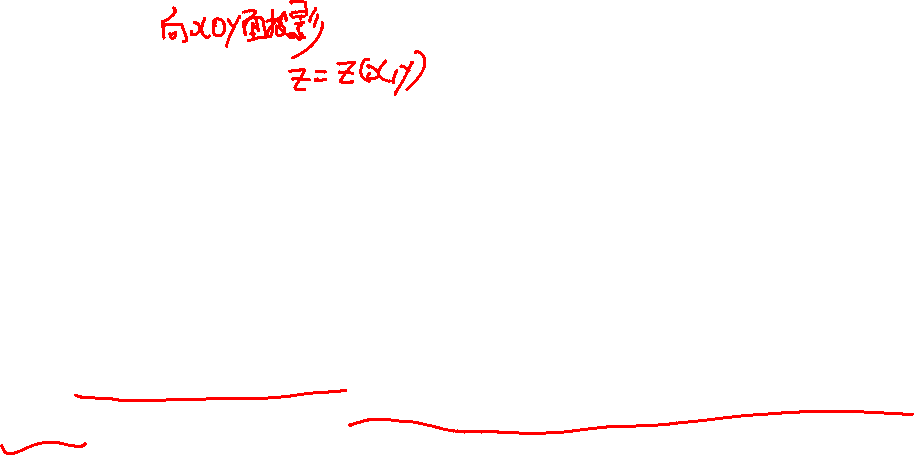 向xOy面投影
z=z(x,y)